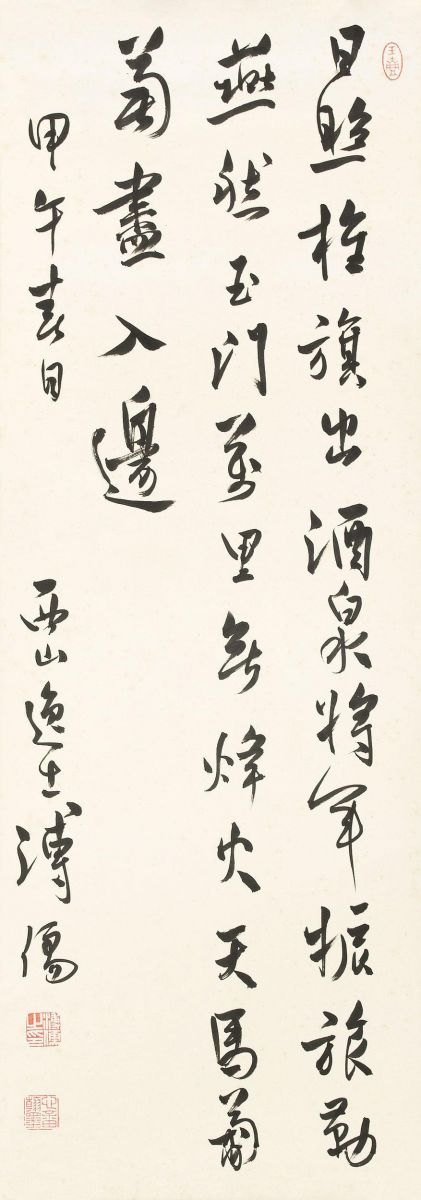 日照旌旗出酒泉將軍振旅勒
燕然玉門萬里無烽火天馬葡
萄盡入邊
甲午春日
西山逸士溥儒